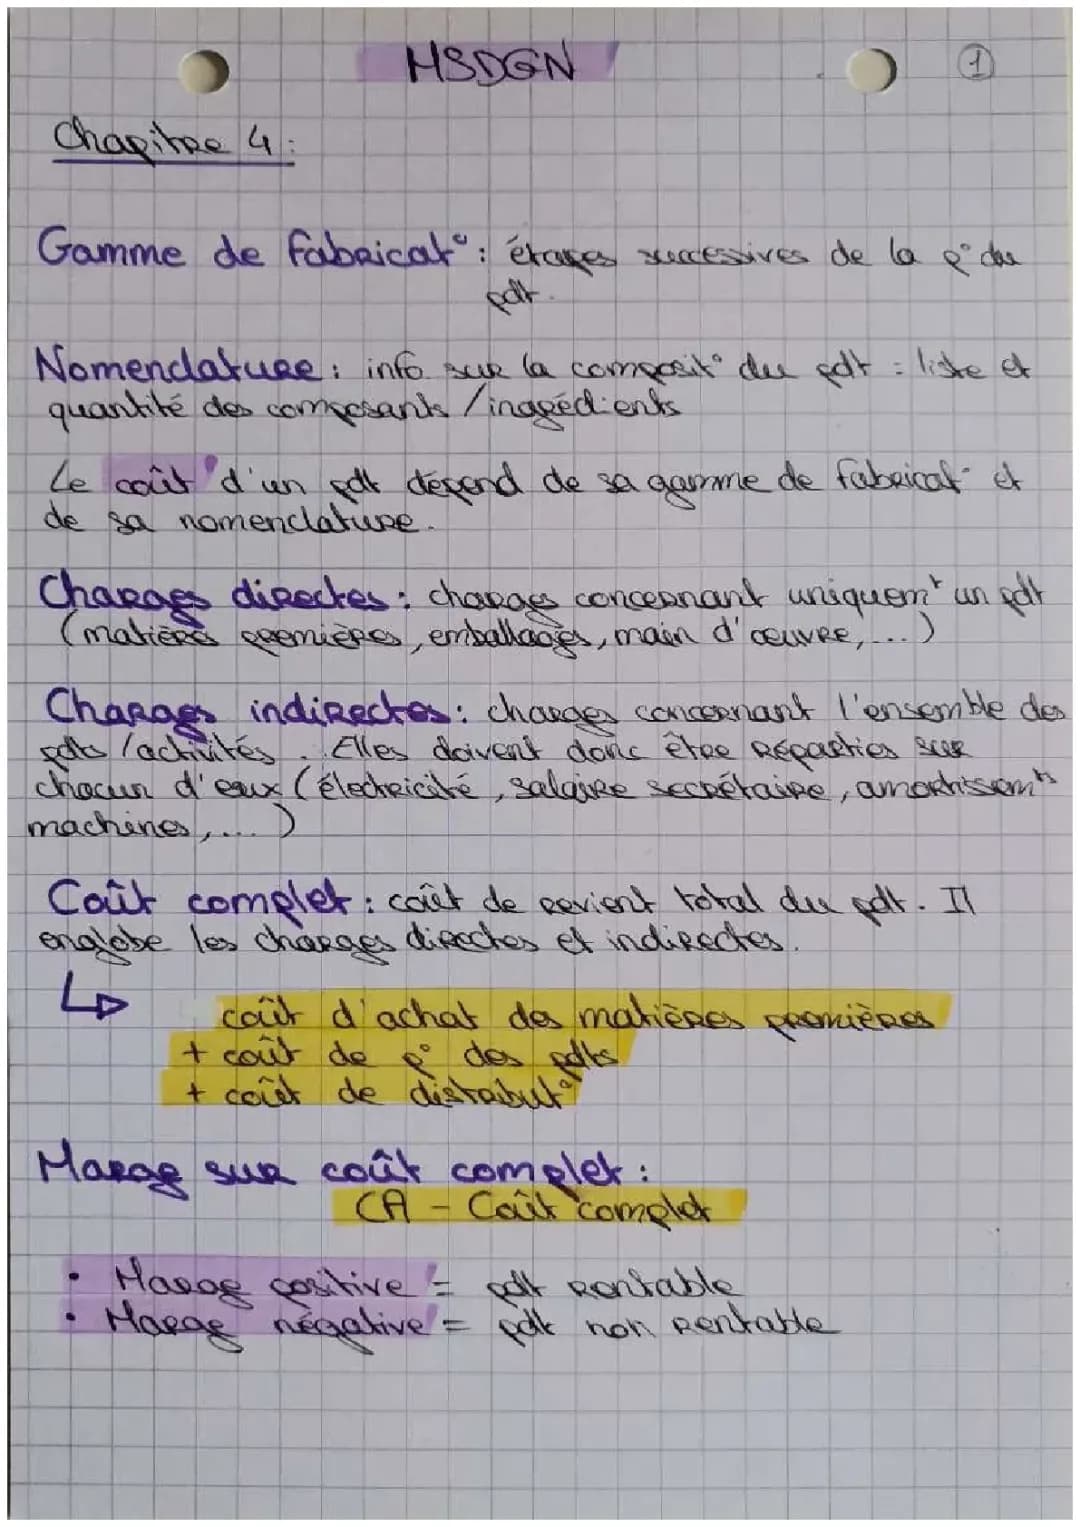 MSDGN
1
Chapitre 4 :
Gamme de fabricat° : étapes successives de la p° du
pdt.
Nomenclature : info sur la composit° du pdt : liste et
quantité des composants / ingrédients
Le coût d'un pdt dépend de sa gamme de fabricat° et
de sa nomenclature.
Charges directes : charges concernant uniquemt un pdt
(matières premières, emballages, main d'œuvre, ...)
Charges indirectes : charges concernant l'ensemble des
pdts / activités. Elles doivent donc être réparties sur
chacun d'eux (électricité, salaire secrétaire, amortissemts
machines, ... )
Coût complet : coût de revient total du pdt. Il
englobe les charges directes et indirectes.
↳ coût d'achat des matières premières
+ coût de p° des pdts
+ coût de distribut°
Marge sur coût complet :
CA - Coût complet
• Marge positive = pdt rentable
• Marge négative = pdt non rentable